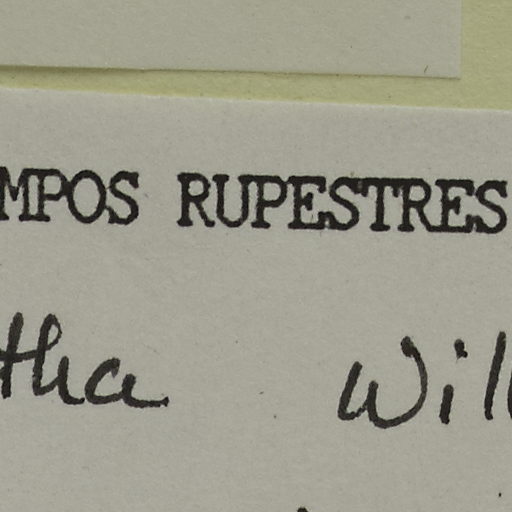 MPOS RUPESTRES
tha Will